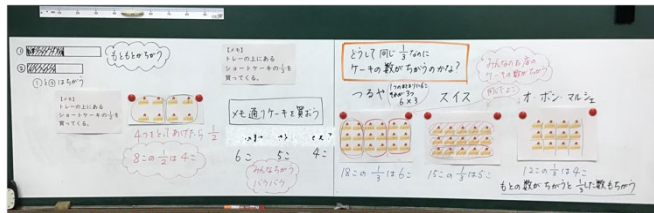 ①
もともとがちがう
②
①と②はちがう
【メモ】
トレーの上にある
ショートケーキの1/2を
買ってくる。
4つをとってあげたら 1/2
8この1/2は4こ
【メモ】
トレーの上にある
ショートケーキの1/3を
買ってくる。
メモ通りケーキを買おう
6こ 5こ 4こ
みんなちがう
バラバラ
どうして同じ1/3なのに
ケーキの数がちがうのかな?
みんなのお店の
ケーキの数がちがう
つるや
6×3
スイス
オ・ボン・マルシェ
18この1/3は6こ
15この1/3は5こ
12この1/3は4こ
もとの数がちがうと1/3した数もちがう